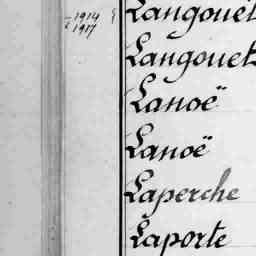 1914
1917
Langouët
Langouet
Lanoë
Lanoë
Laperche
Laporte